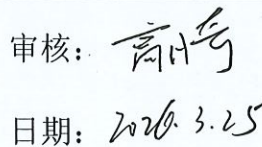 审核：高
日期：2026.3.25